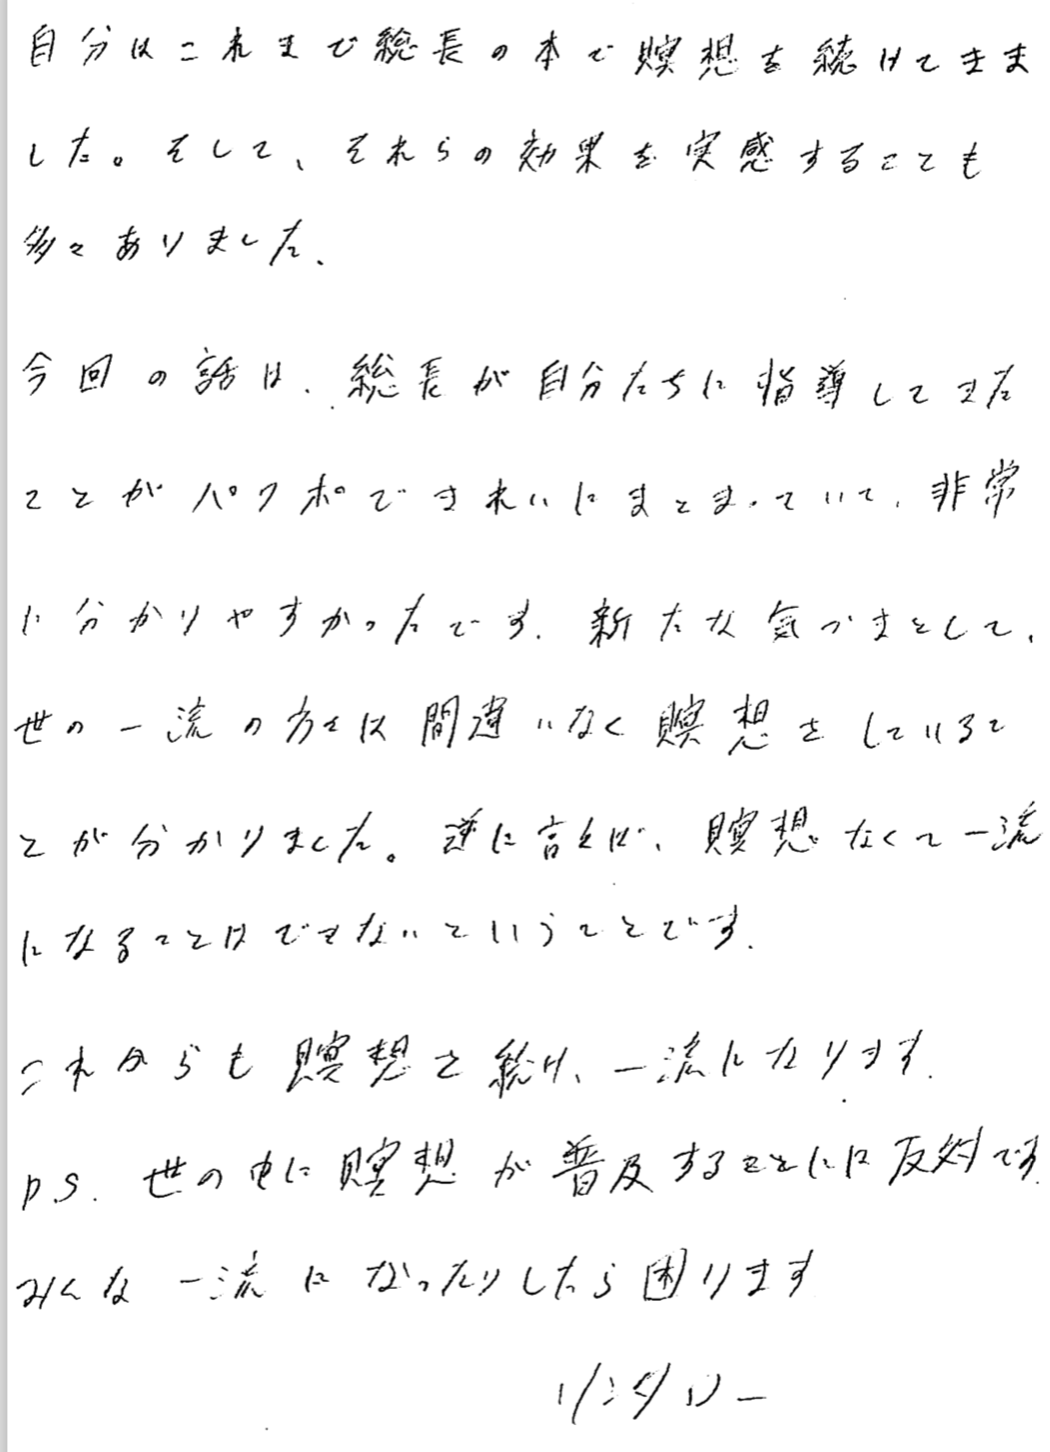 自分はこれまで総長の本で瞑想を続けてきま
した。そして、それらの効果を実感することも
多々ありました。
今回の話は、総長が自分たちに指導してきた
ことがパワポできれいにまとまっていて、非常
に分かりやすかったです。新たな気づきとして、
世の一流の方々は間違いなく瞑想をしているこ
とが分かりました。逆に言えば、瞑想なくて一流
になることはできないということです。
これからも瞑想を続け、一流になります。
P.S. 世の中に瞑想が普及することには反対です。
みんな一流になったりしたら困ります
リンタロー